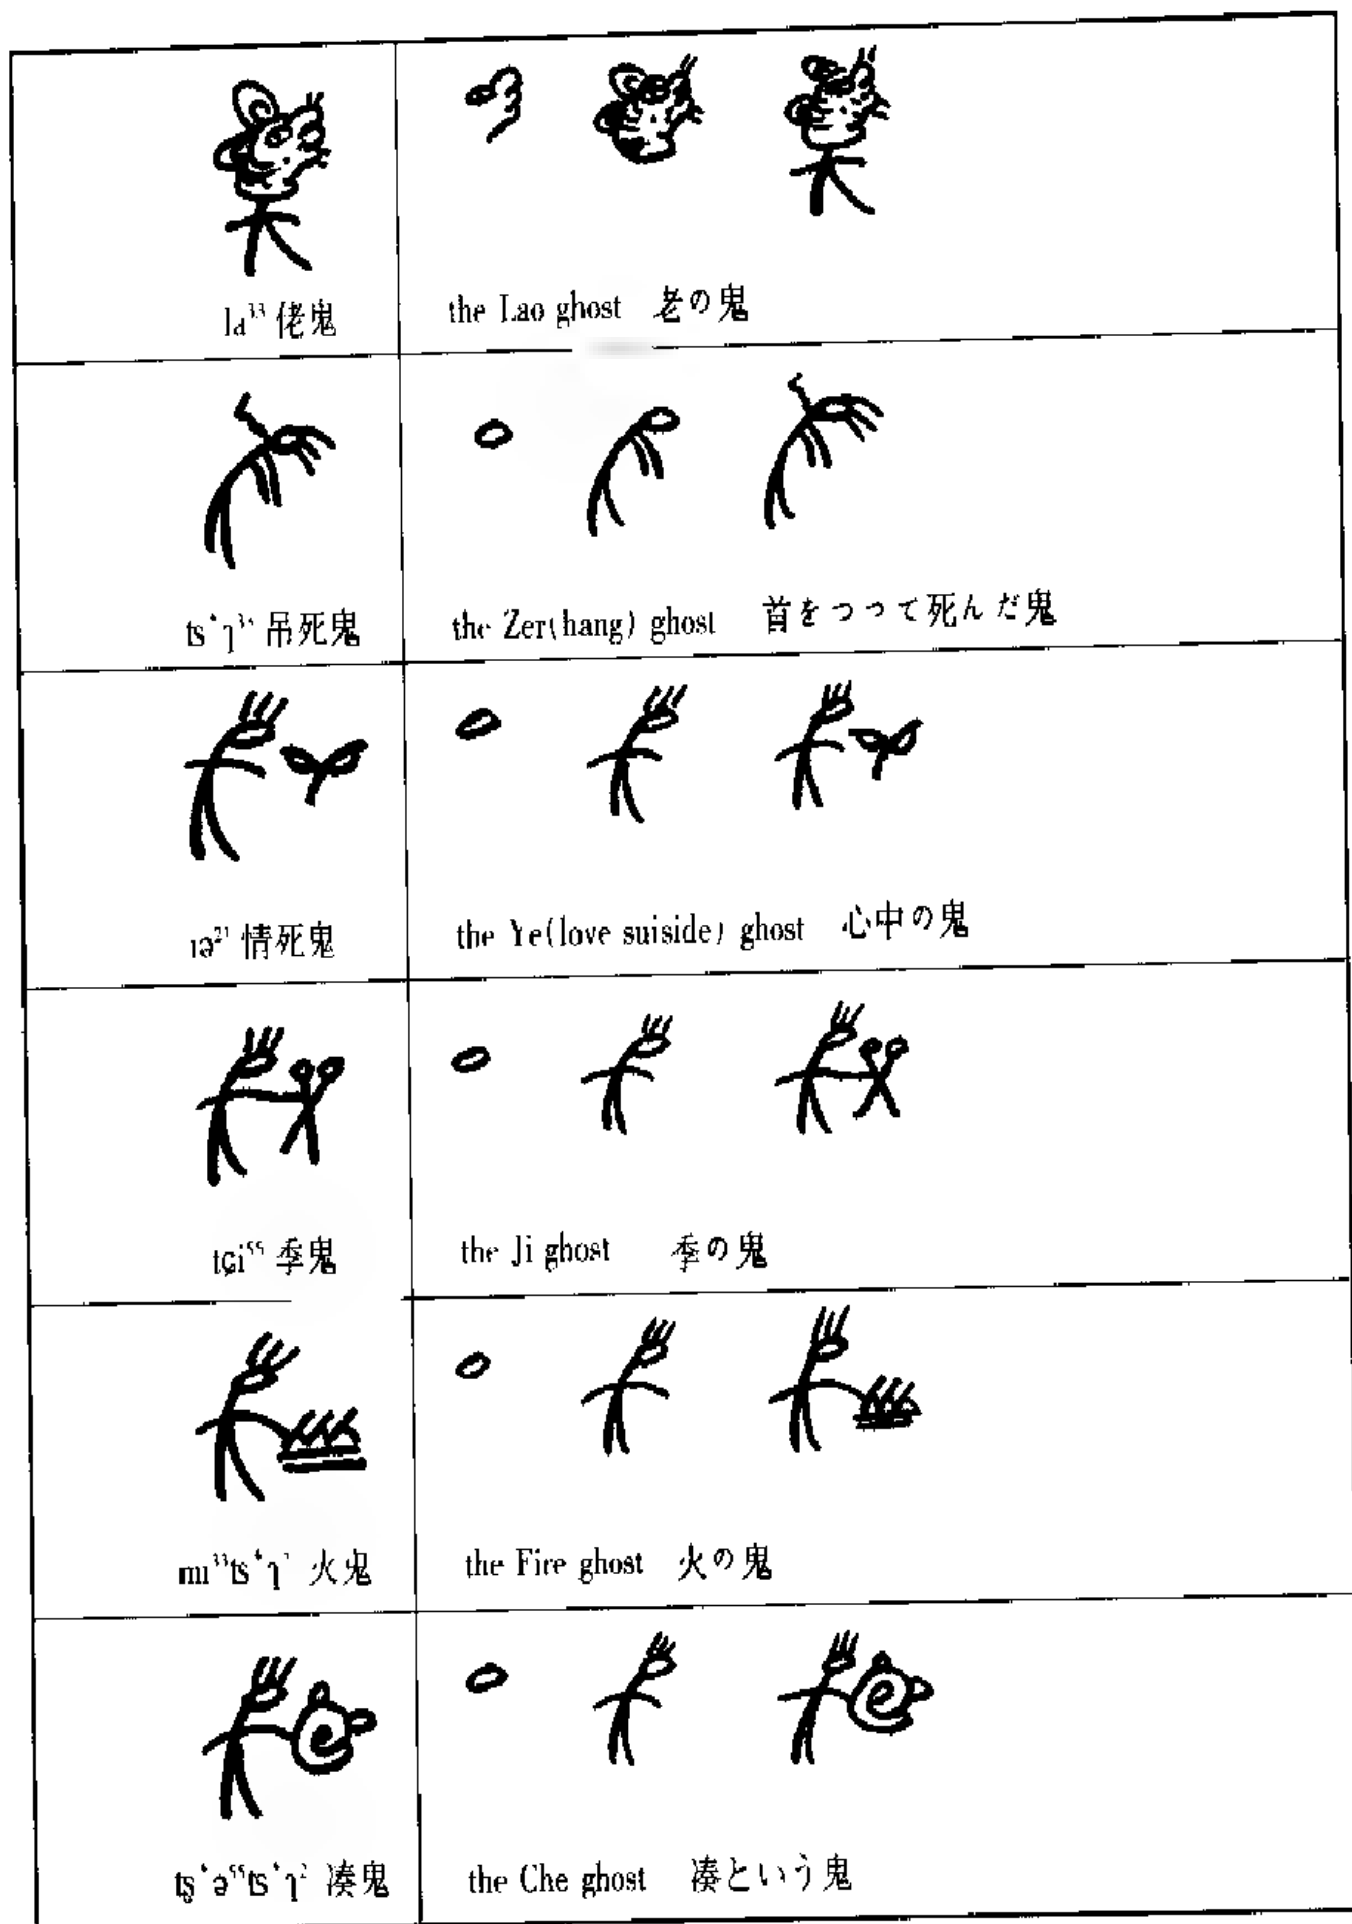 la³³ 佬鬼 the Lao ghost 老の鬼
吊死鬼 the Zer(hang) ghost 首をつって死んだ鬼
ɪə²¹ 情死鬼 the Ye(love suiside) ghost 心中の鬼
tɕi⁵⁵ 季鬼 the Ji ghost 季の鬼
火鬼 the Fire ghost 火の鬼
凑鬼 the Che ghost 凑という鬼